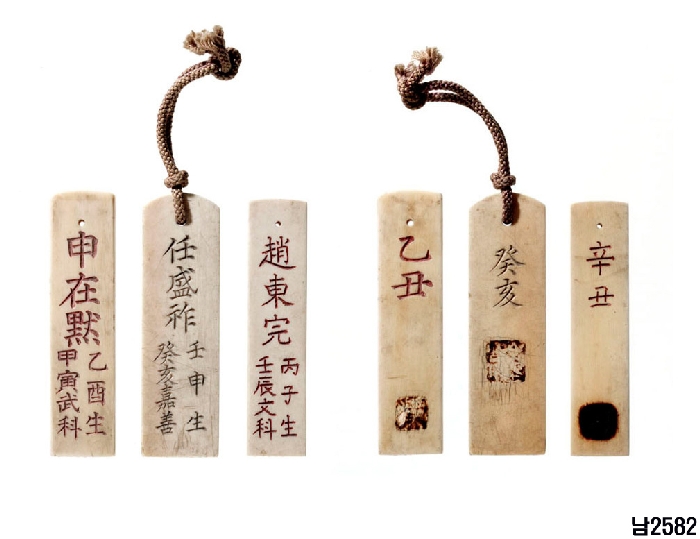 申在黙
乙酉生
甲寅武科
任盛祚
壬申生
癸亥嘉善
趙東完
丙子生
壬辰文科
乙丑
癸亥
辛丑
남2582